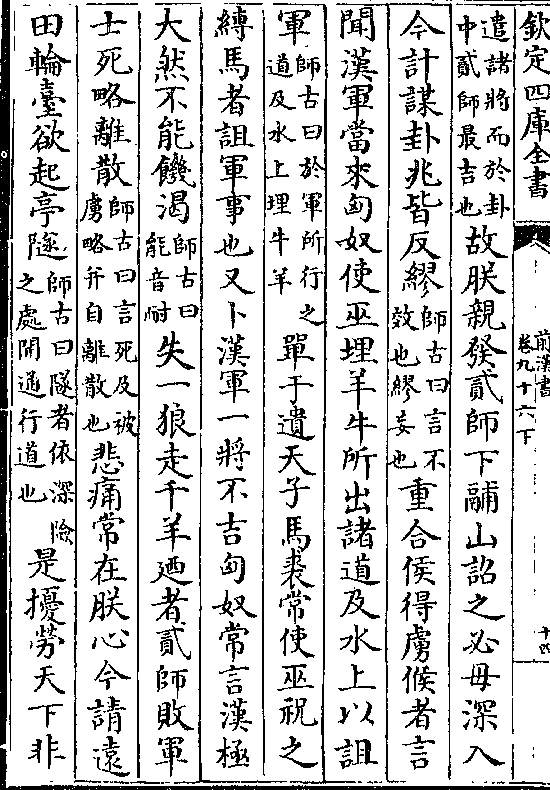 欽定四庫全書
前漢書
卷九十六下
十四
遣諸將而於卦
中貳師最吉也
故朕親發貳師下鬴山詔之必毋深入
今計謀卦兆皆反繆
師古曰言不
效也繆妄也
重合侯得虜候者言
聞漢軍當來匈奴使巫埋羊牛所出諸道及水上以詛
軍
師古曰於軍所行之
道及水上埋牛羊
單于遺天子馬裘常使巫祝之
縳馬者詛軍事也又卜漢軍一將不吉匈奴常言漢極
大然不能饑渴
師古曰
能音耐
失一狼走千羊廼者貳師敗軍
士死略離散
師古曰言死及被
虜略并自離散也
悲痛常在朕心今請遠
田輪臺欲起亭隧
師古曰隧者依深險
之處開通行道也
是擾勞天下非